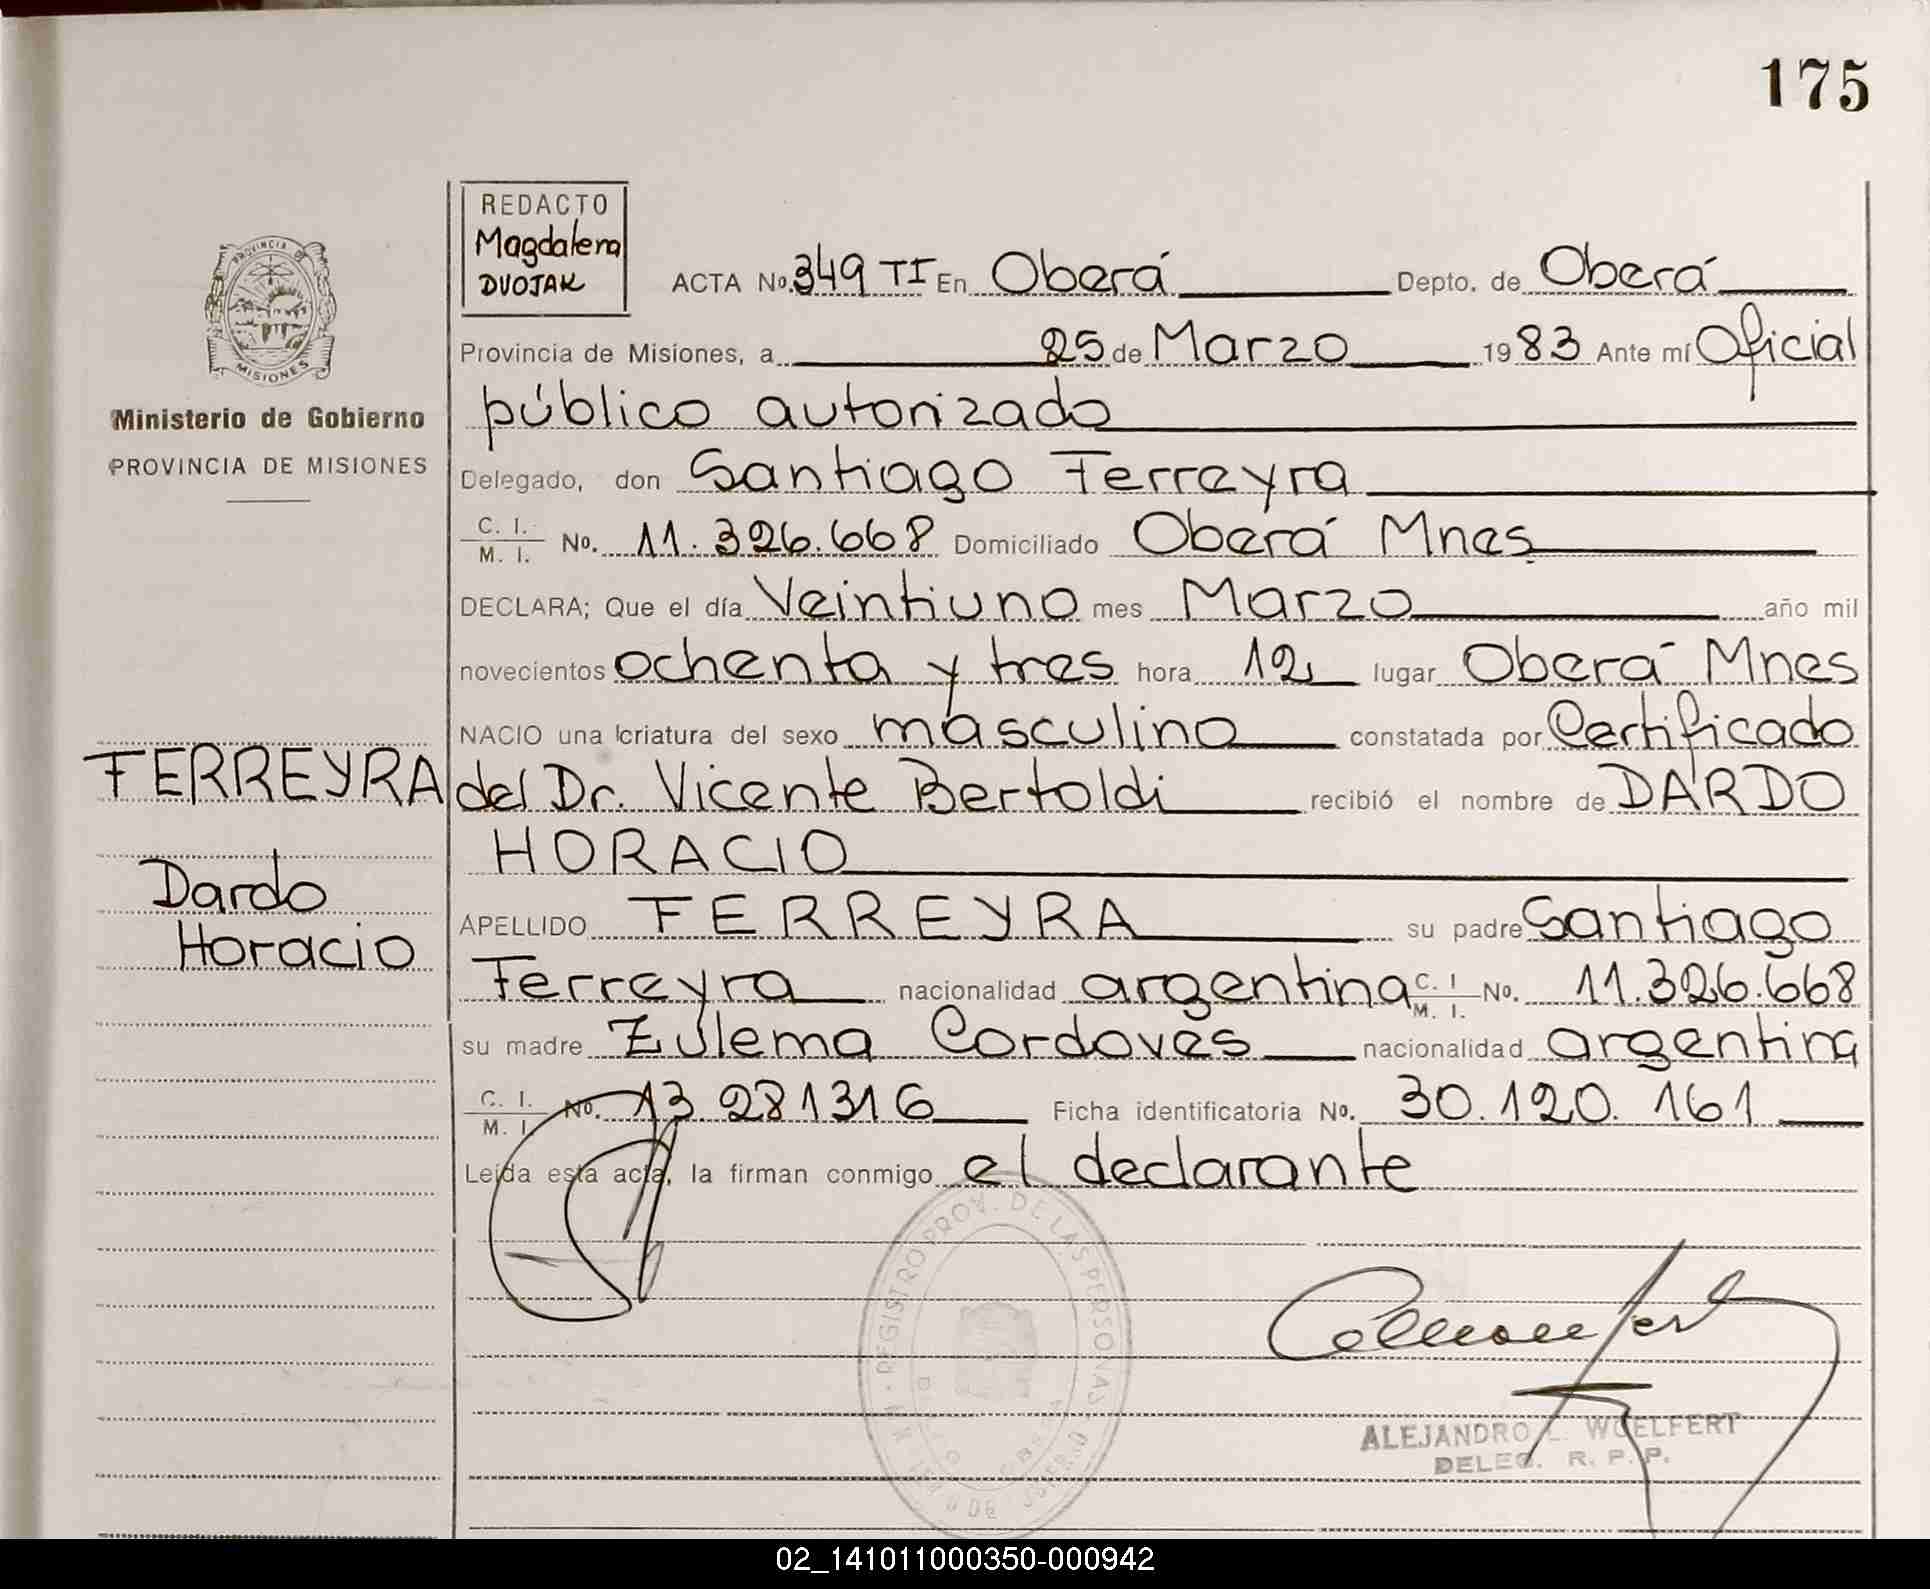 175
REDACTO
Magdalena
DVOJAK
PROVINCIA DE
MISIONES
Ministerio de Gobierno
PROVINCIA DE MISIONES
ACTA No. 349 TI En Oberá Depto. de Oberá
Provincia de Misiones, a 25 de Marzo 1983 Ante mí Oficial
público autorizado
Delegado, don Santiago Ferreyra
C. I.
M. I. No. 11.326.668 Domiciliado Oberá Mnes
DECLARA; Que el día Veintiuno mes Marzo año mil
novecientos ochenta y tres hora 12 lugar Oberá Mnes
NACIO una criatura del sexo masculino constatada por Certificado
FERREYRA
del Dr. Vicente Bertoldi recibió el nombre de DARDO
HORACIO
Dardo
Horacio
APELLIDO FERREYRA su padre Santiago
Ferreyra nacionalidad argentina C. I M. I. No. 11.326.668
su madre Zulema Cordoves nacionalidad argentina
C. I.
M. I. No. 13.281316 Ficha identificatoria No. 30.120.161
Leída esta acta, la firman conmigo el declarante
REGISTRO PROV. DE LAS PERSONAS
ALEJANDRO L. WOELFERT
DELEG. R. P. P.
02_141011000350-000942